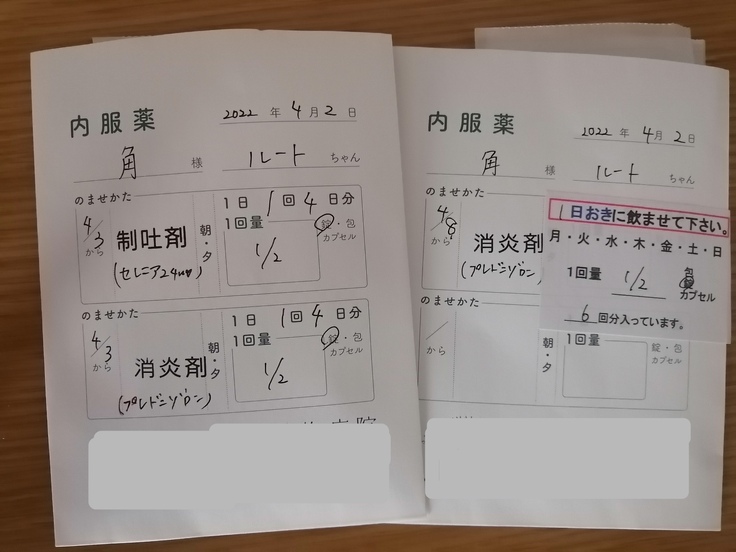 内服薬
2022年4月2日
角 様 ルート ちゃん
のませかた
4/3から
制吐剤
(セレニア24mg)
朝・夕
1日1回4日分
1回量
1/2
錠・包
カプセル
のませかた
4/3から
消炎剤
(プレドニゾロン)
朝・夕
1日1回4日分
1回量
1/2
錠・包
カプセル
内服薬
2022年4月2日
角 様 ルート ちゃん
のませかた
4/8から
消炎剤
(プレドニゾロン)
1日おきに飲ませて下さい。
月・火・水・木・金・土・日
1回量 1/2 包
錠
カプセル
6回分入っています。
のませかた
/から
朝・夕
1回量
錠・包
カプセル